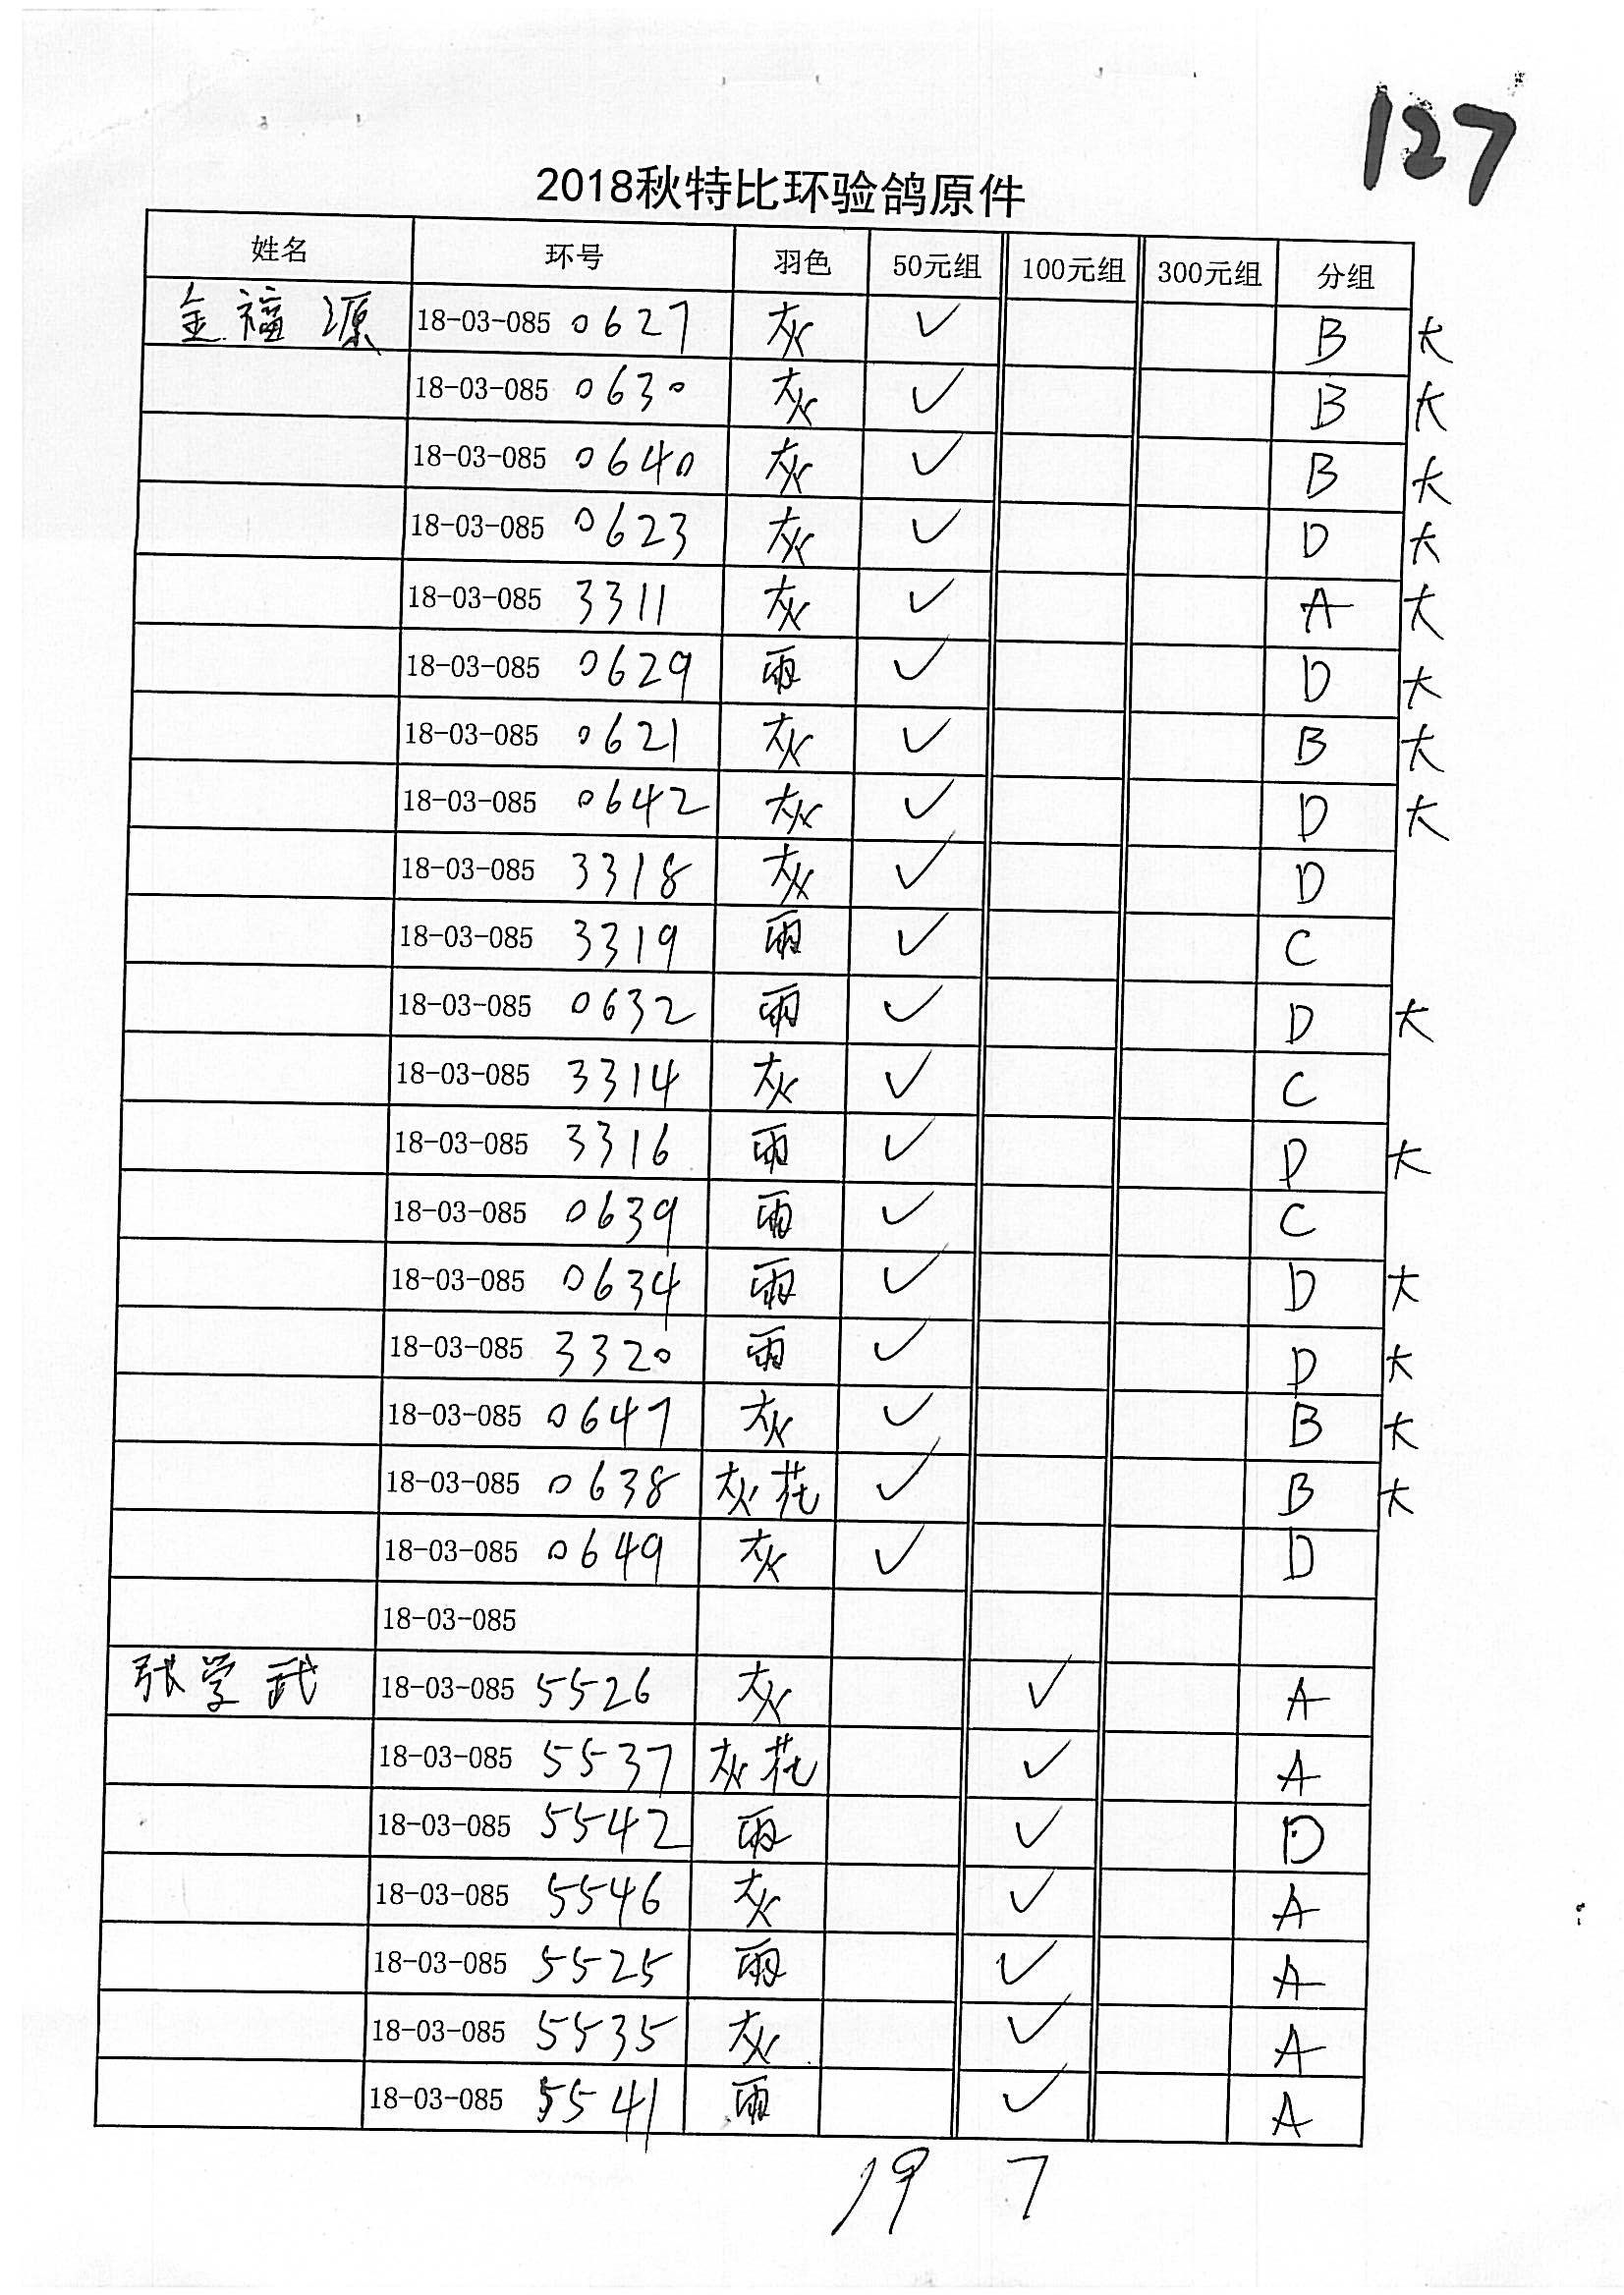 127
2018秋特比环验鸽原件
姓名 环号 羽色 50元组 100元组 300元组 分组
金福源 18-03-085 0627 灰 ✓ B 大
18-03-085 0630 灰 ✓ B 大
18-03-085 0640 灰 ✓ B 大
18-03-085 0623 灰 ✓ D 大
18-03-085 3311 灰 ✓ A 大
18-03-085 0629 雨 ✓ D 大
18-03-085 0621 灰 ✓ B 大
18-03-085 0642 灰 ✓ D 大
18-03-085 3318 灰 ✓ D
18-03-085 3319 雨 ✓ C
18-03-085 0632 雨 ✓ D 大
18-03-085 3314 灰 ✓ C
18-03-085 3316 雨 ✓ D 大
18-03-085 0639 雨 ✓ C
18-03-085 0634 雨 ✓ D 大
18-03-085 3320 雨 ✓ D 大
18-03-085 0647 灰 ✓ B 大
18-03-085 0638 灰花 ✓ B 大
18-03-085 0649 灰 ✓ D
18-03-085
张学武 18-03-085 5526 灰 ✓ A
18-03-085 5537 灰花 ✓ A
18-03-085 5542 雨 ✓ D
18-03-085 5546 灰 ✓ A
18-03-085 5525 雨 ✓ A
18-03-085 5535 灰 ✓ A
18-03-085 5541 雨 ✓ A
19 7